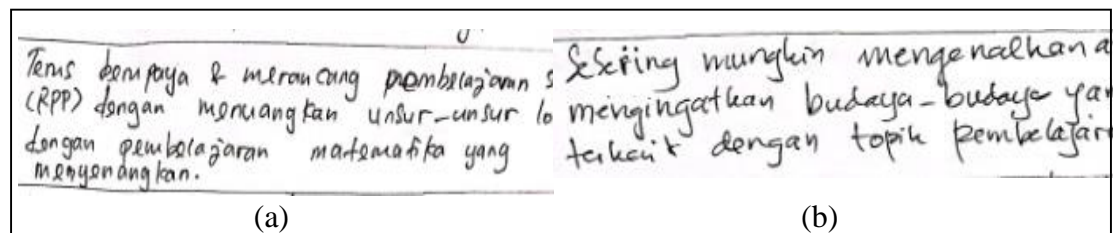 Terus berupaya & merancang pembelajaran s
(RPP) dengan menuangkan unsur-unsur lo
dengan pembelajaran matematika yang
menyenangkan.
(a)
Sesering mungkin mengenalkan a
mengingatkan budaya-budaya yan
terkait dengan topik pembelajar
(b)